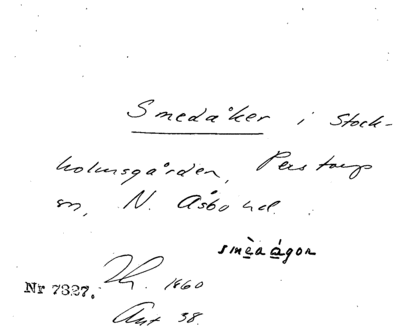 Smedåker i Stock-
holmsgården, Perstorp
sn, N. Åsbo hd.
smèaágon
Nr 7327. 1860
Ant 38.